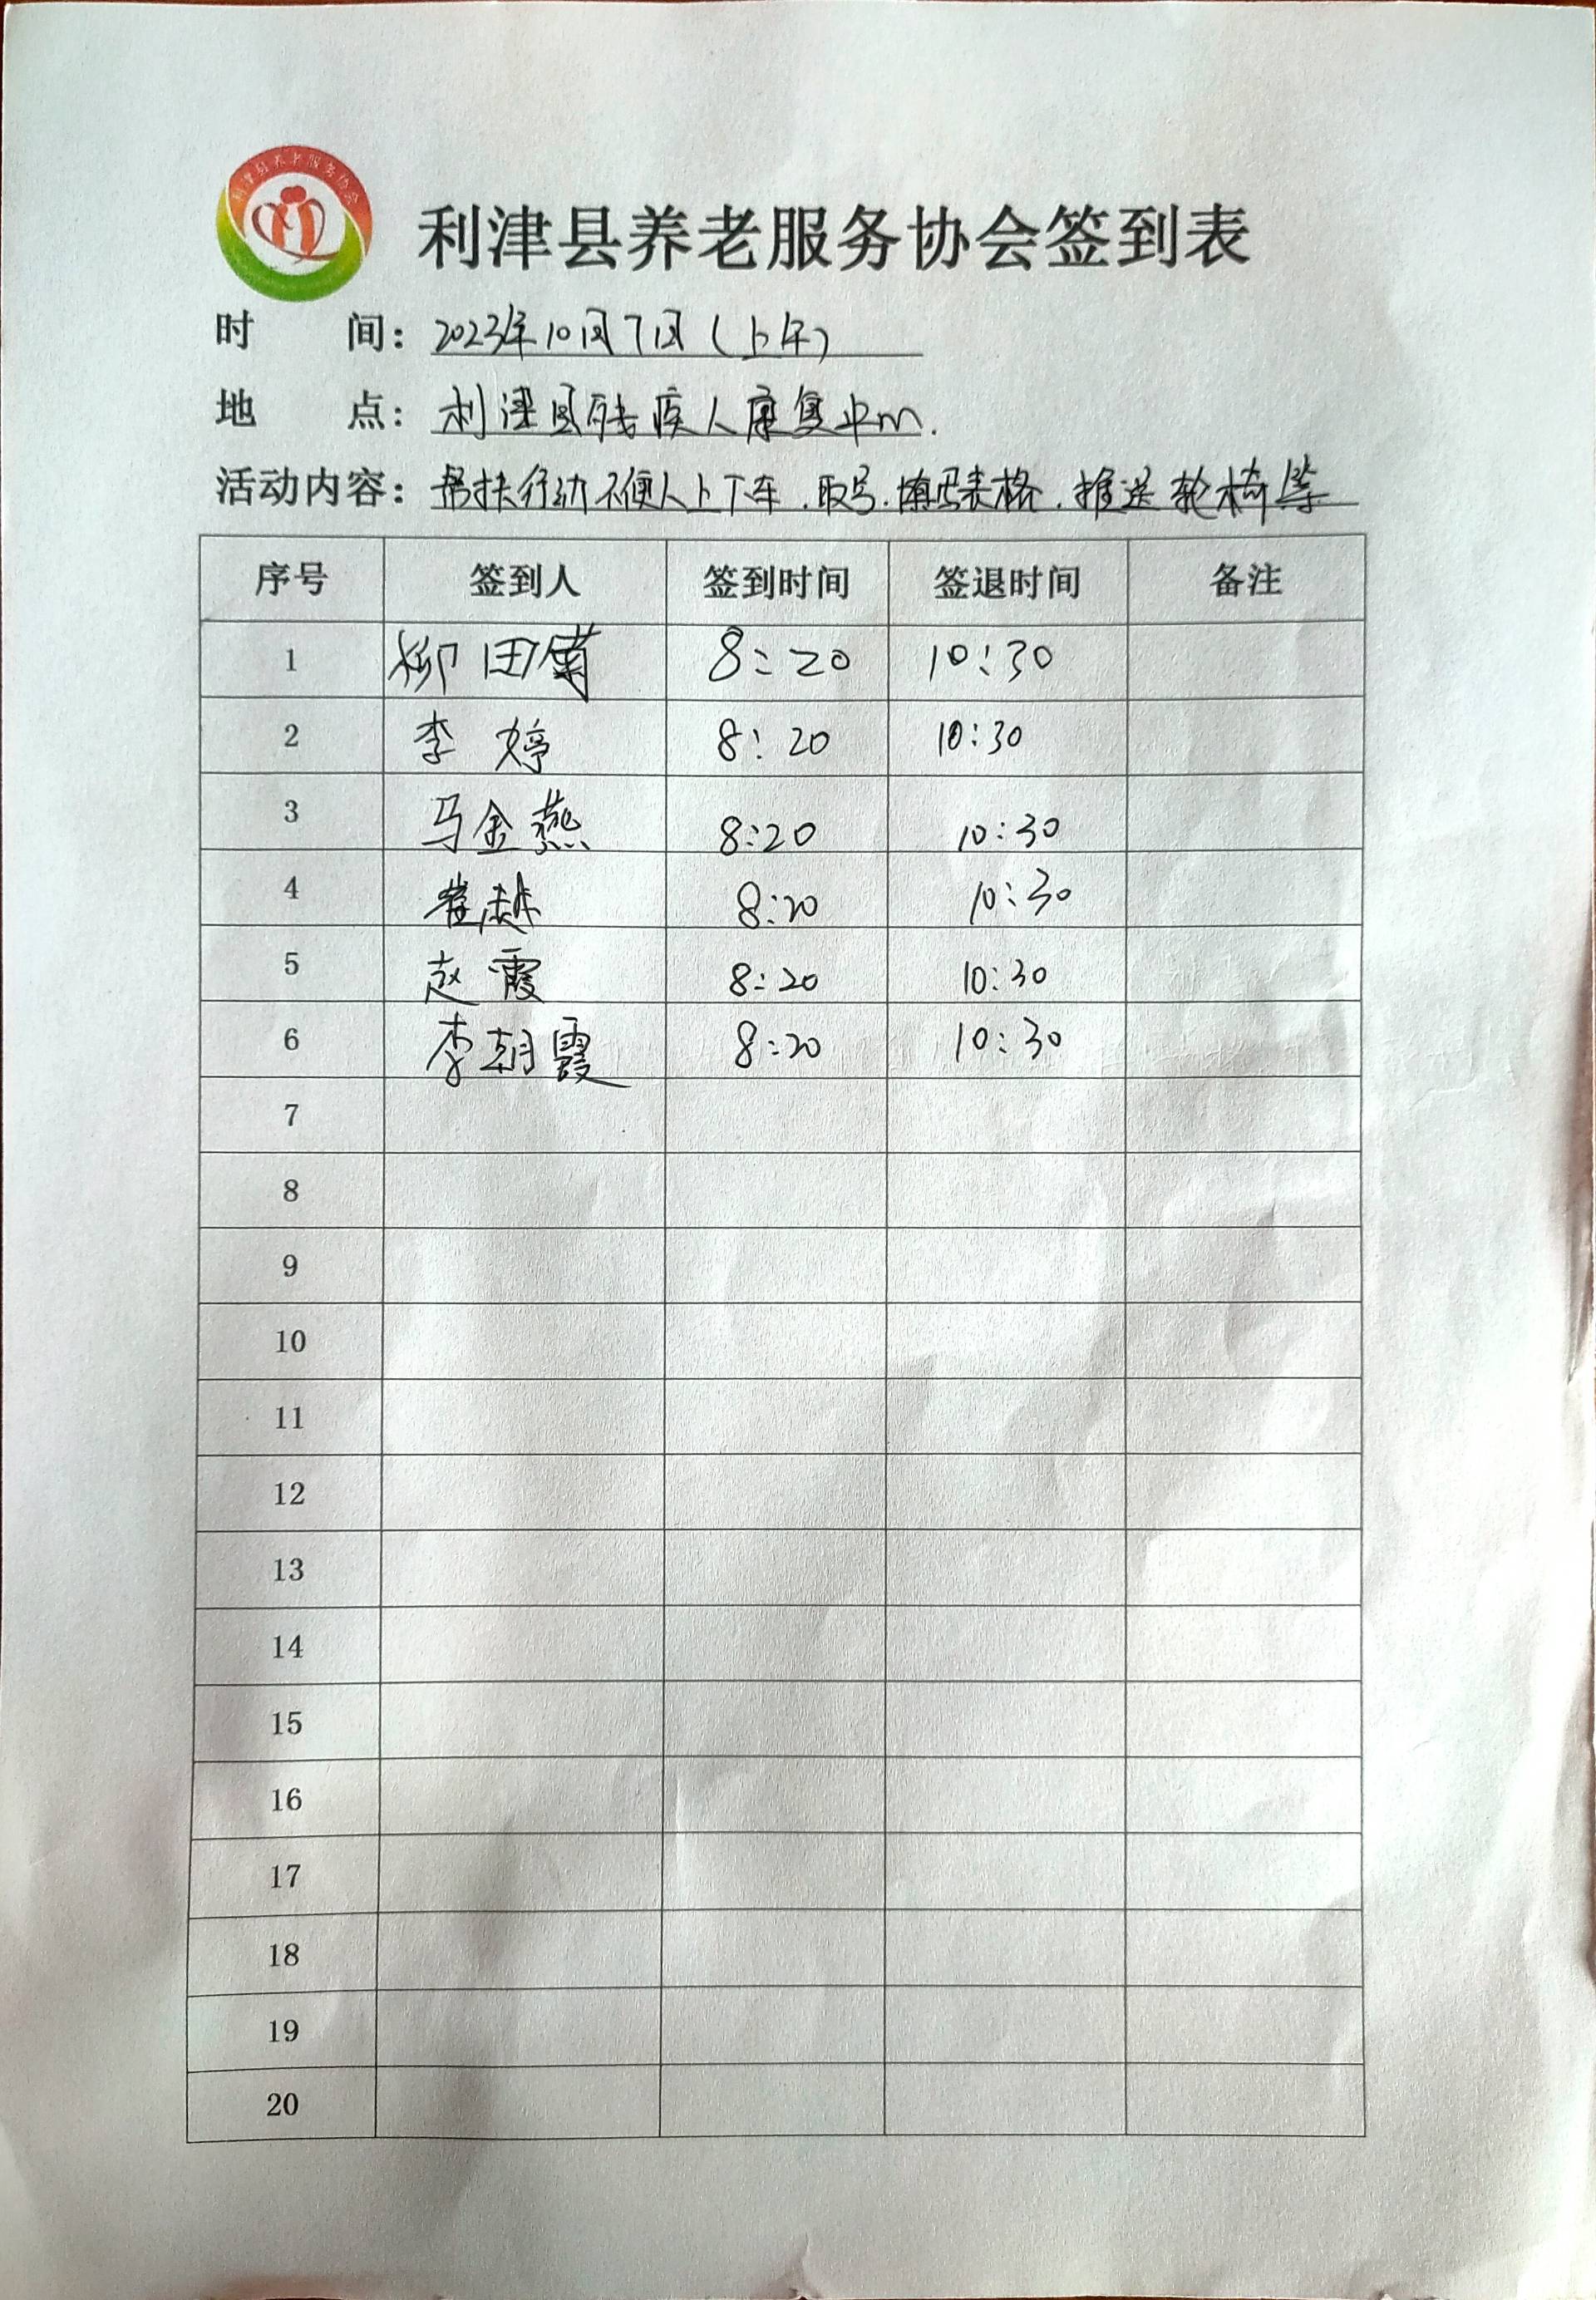 利津县养老服务协会
利津县养老服务协会签到表
时 间：2023年10月7日（上午）
地 点：利津县残疾人康复中心.
活动内容：帮扶行动不便人上下车.取号.填写表格.推送轮椅等
序号 签到人 签到时间 签退时间 备注
1 柳田菊 8:20 10:30
2 李婷 8:20 10:30
3 马金燕 8:20 10:30
4 崔越 8:20 10:30
5 赵霞 8:20 10:30
6 李朝霞 8:20 10:30
7
8
9
10
11
12
13
14
15
16
17
18
19
20